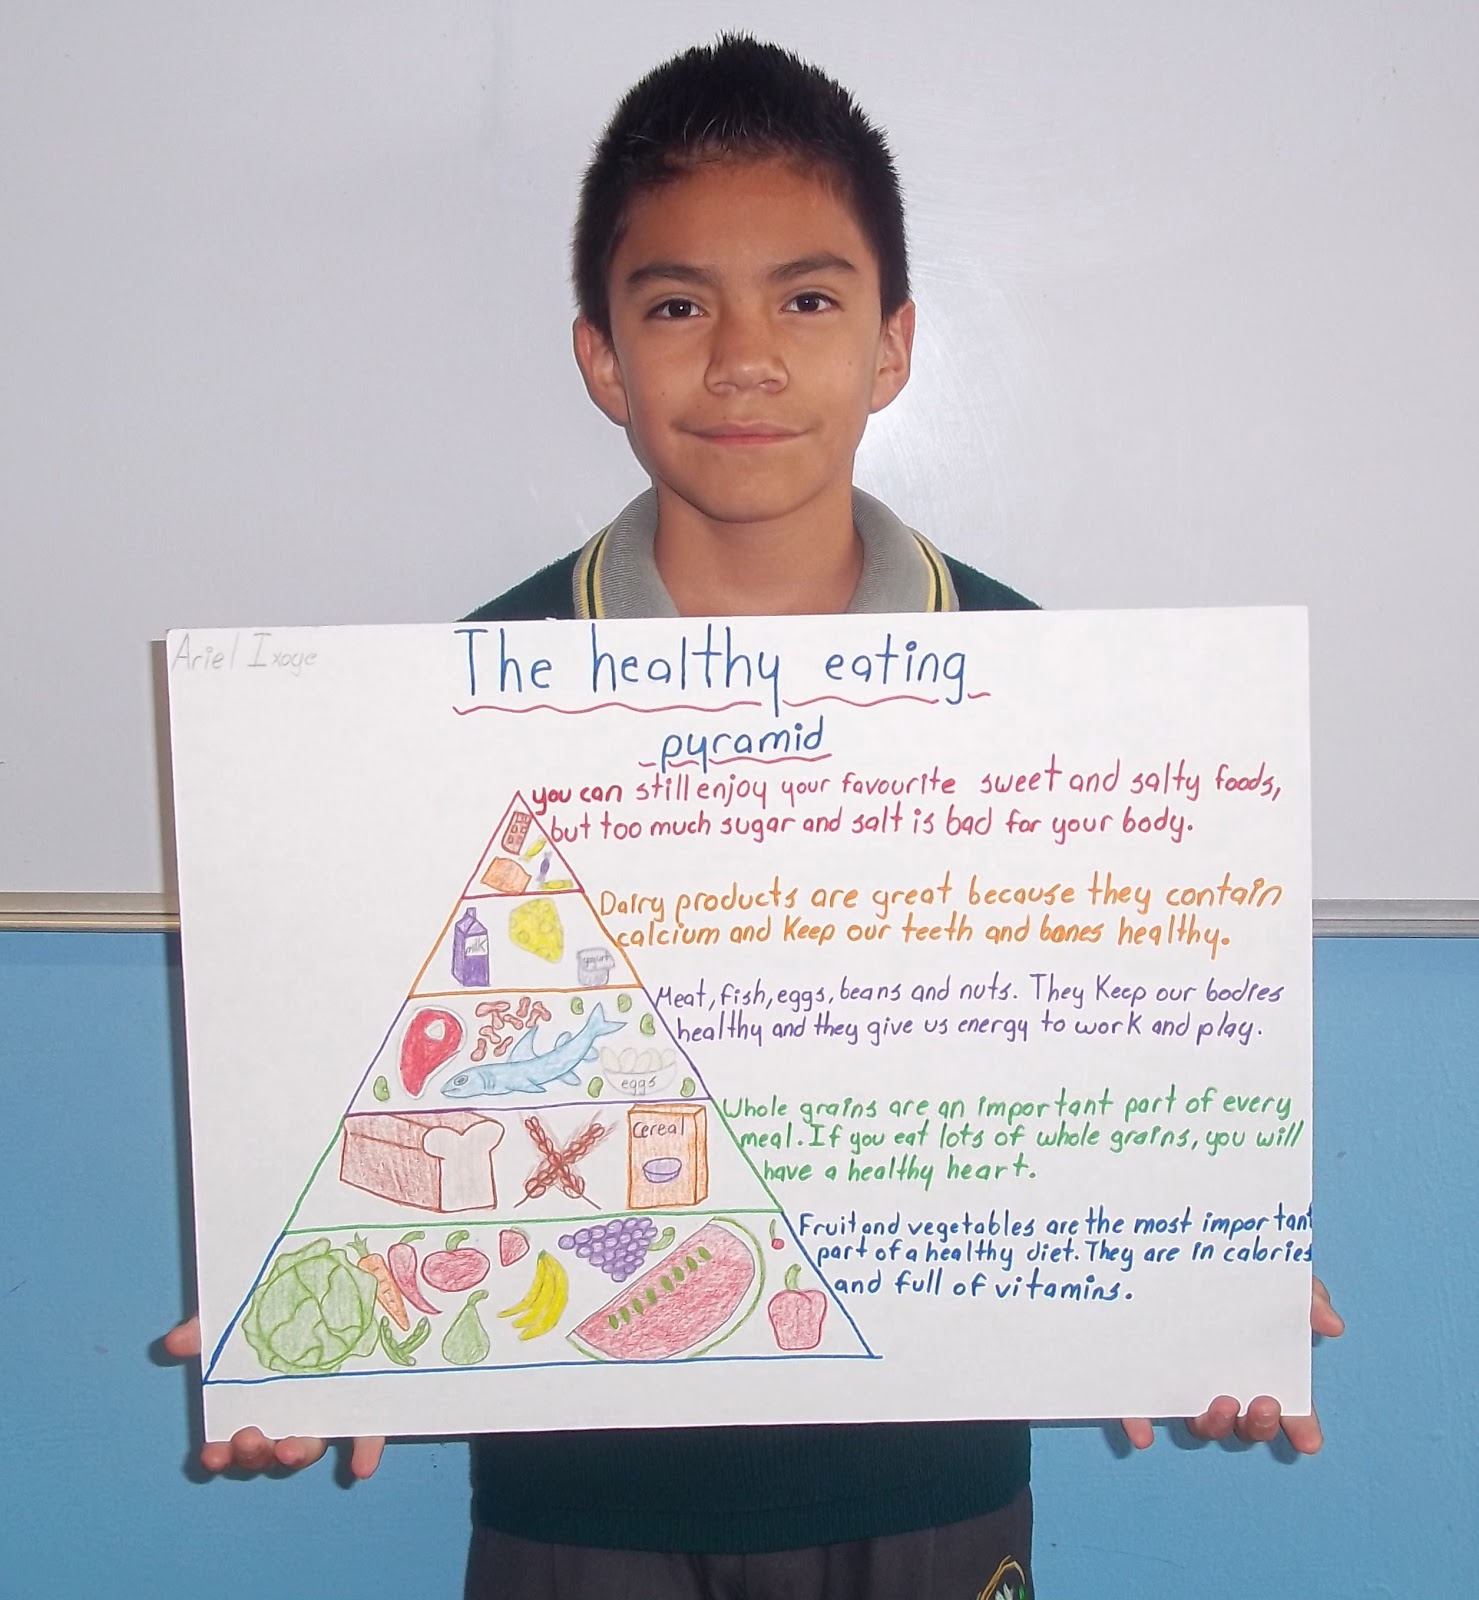 Ariel Ixoge
The healthy eating
pyramid
you can still enjoy your favourite sweet and salty foods,
but too much sugar and salt is bad for your body.
Dairy products are great because they contain
calcium and Keep our teeth and bones healthy.
milk
yogurt
Meat, fish, eggs, beans and nuts. They Keep our bodies
healthy and they give us energy to work and play.
eggs
Whole grains are an important part of every
meal. If you eat lots of whole grains, you will
have a healthy heart.
cereal
Fruit and vegetables are the most important
part of a healthy diet. They are in calories
and full of vitamins.